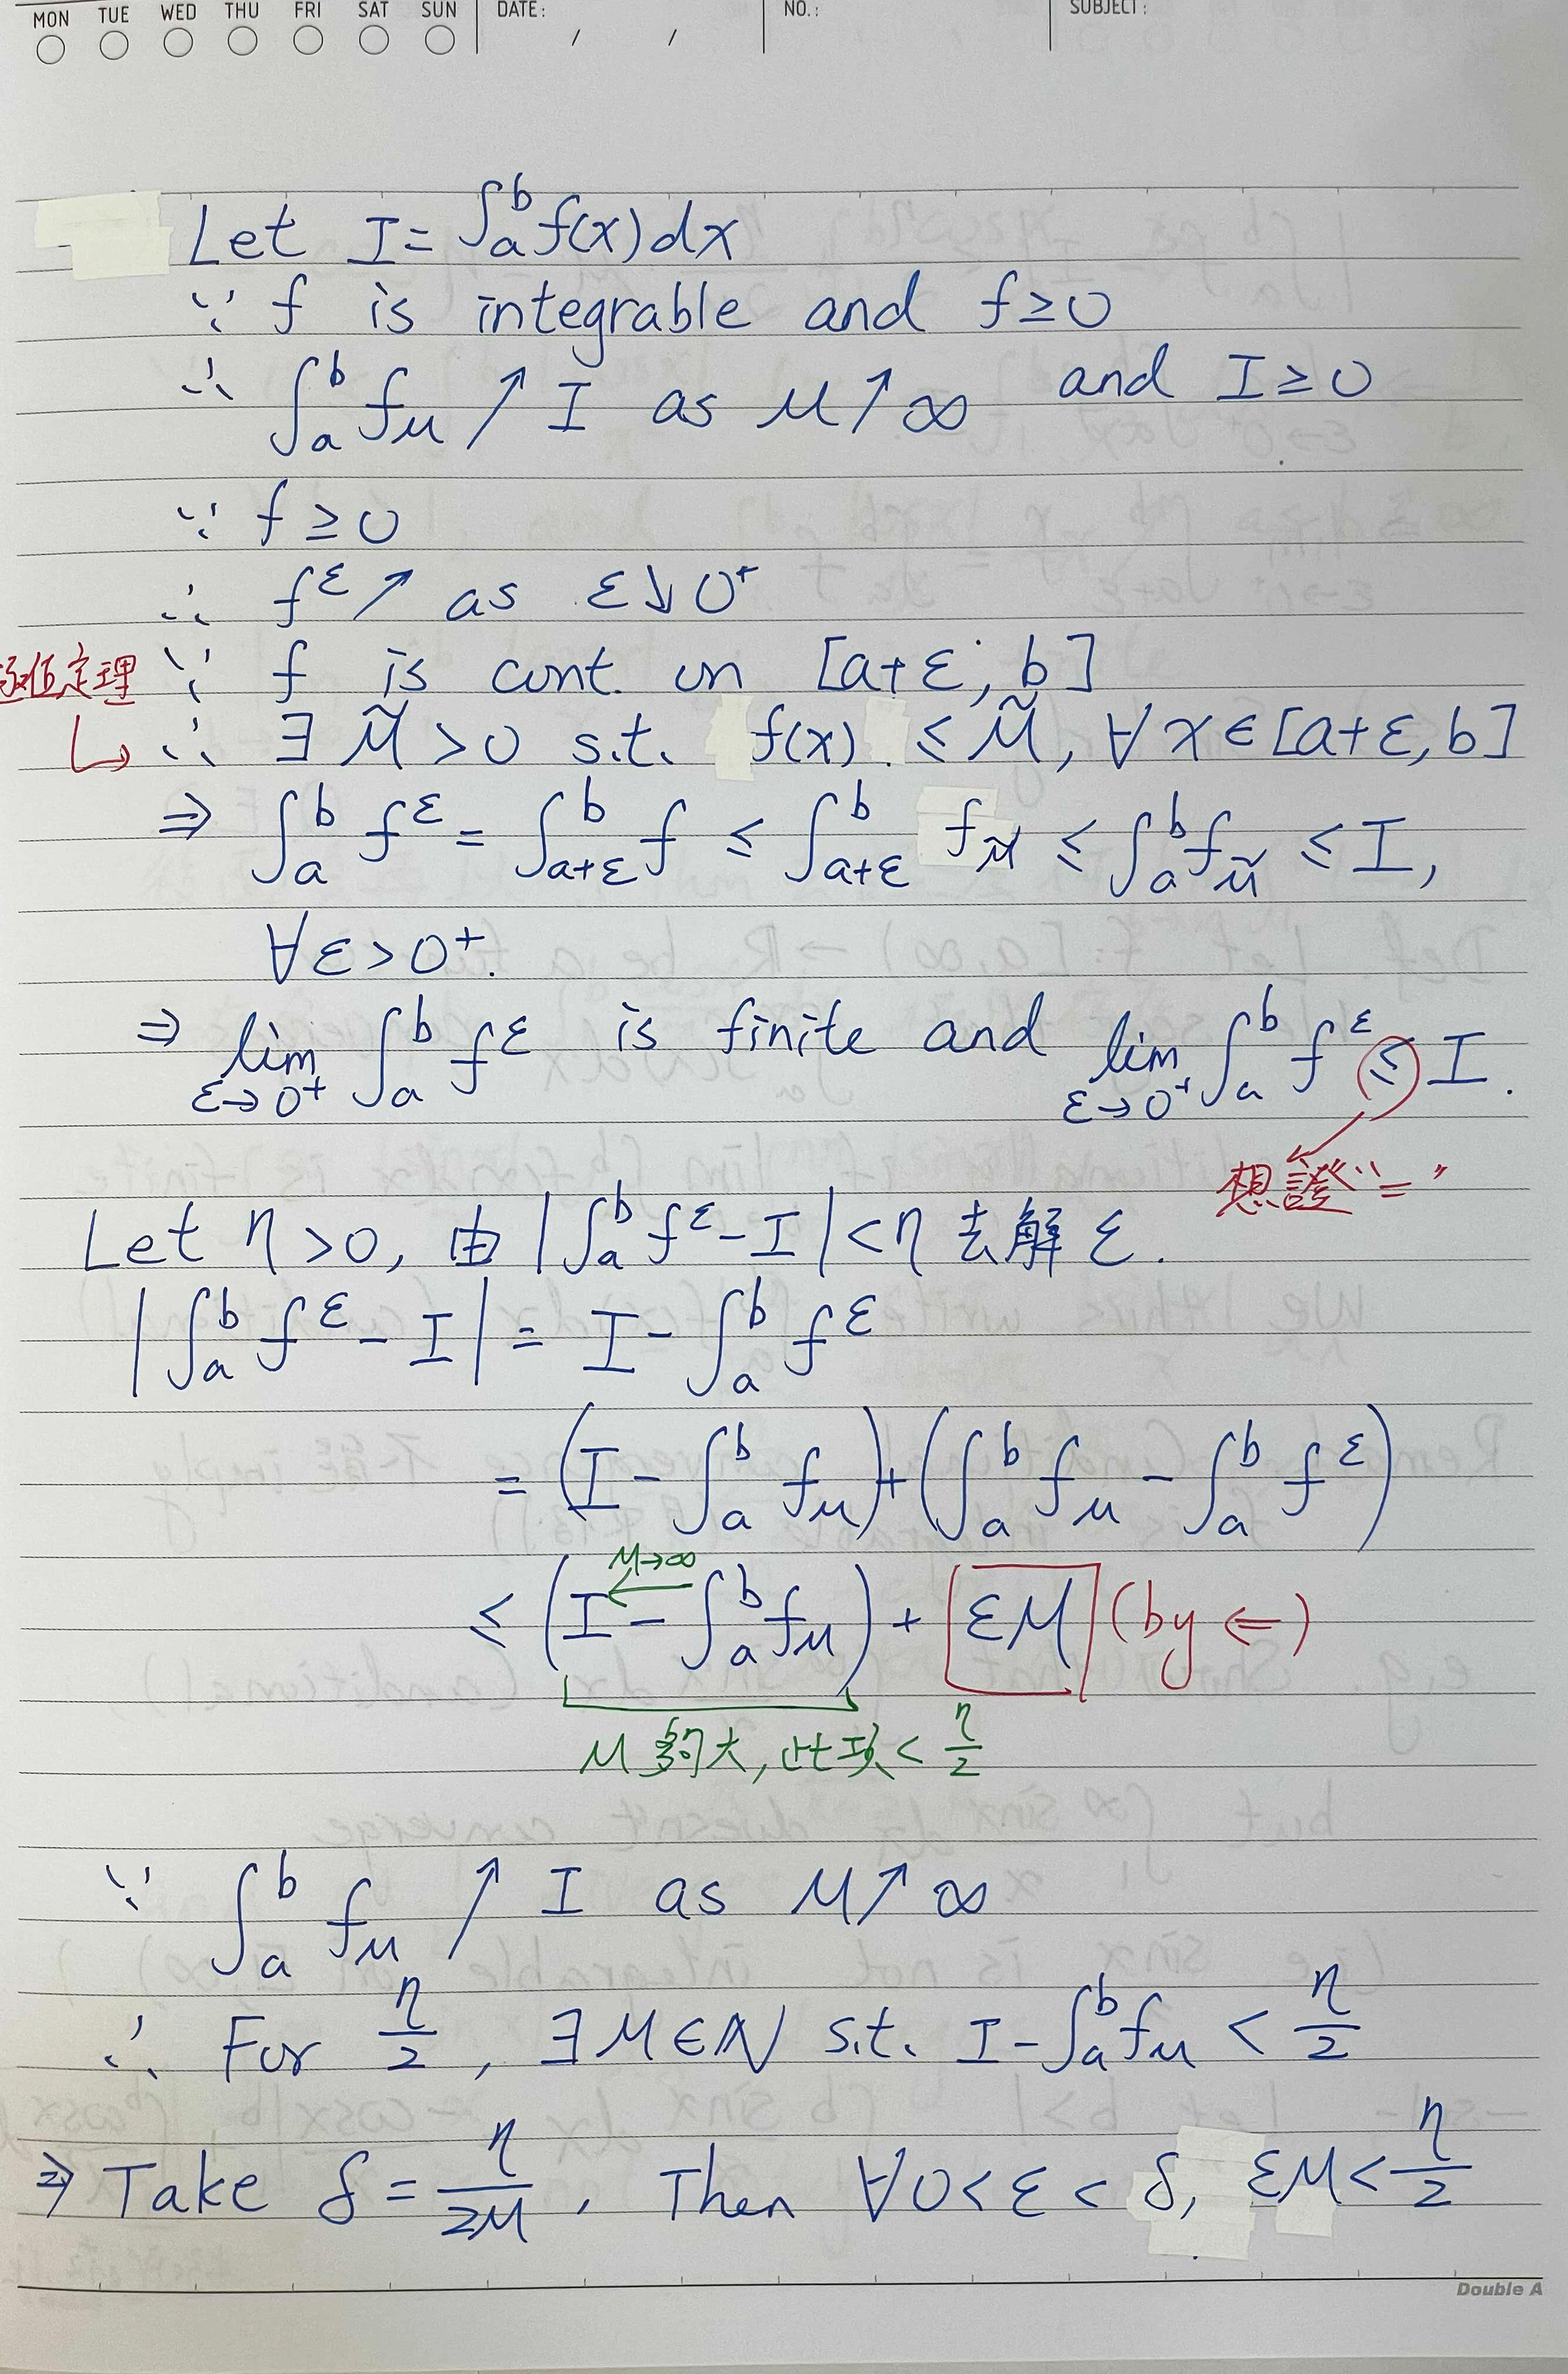 MON TUE WED THU FRI SAT SUN DATE: / / NO.: SUBJECT:
Let I = ∫_a^b f(x)dx
∵ f is integrable and f ≥ 0
∴ ∫_a^b f_M ↗ I as M ↑ ∞ and I ≥ 0
∵ f ≥ 0
∴ f^ε ↗ as ε ↘ 0⁺
極值定理 ∵ f is cont. on [a+ε, b]
↳ ∴ ∃ M̃ > 0 s.t. f(x) ≤ M̃, ∀ x ∈ [a+ε, b]
⇒ ∫_a^b f^ε = ∫_{a+ε}^b f ≤ ∫_{a+ε}^b f_M̃ ≤ ∫_a^b f_M̃ ≤ I,
∀ ε > 0⁺.
⇒ lim_{ε→0⁺} ∫_a^b f^ε is finite and lim_{ε→0⁺} ∫_a^b f^ε ≤ I.
想證 "="
Let η > 0, 由 |∫_a^b f^ε - I| < η 去解 ε.
|∫_a^b f^ε - I| = I - ∫_a^b f^ε
= (I - ∫_a^b f_M) + (∫_a^b f_M - ∫_a^b f^ε)
M→∞
≤ (I - ∫_a^b f_M) + εM (by ⇐)
M 夠大, 此項 < η/2
∵ ∫_a^b f_M ↗ I as M ↗ ∞
∴ For η/2, ∃ M ∈ ℕ s.t. I - ∫_a^b f_M < η/2
⇒ Take δ = η/2M, Then ∀ 0 < ε < δ, εM < η/2
Double A